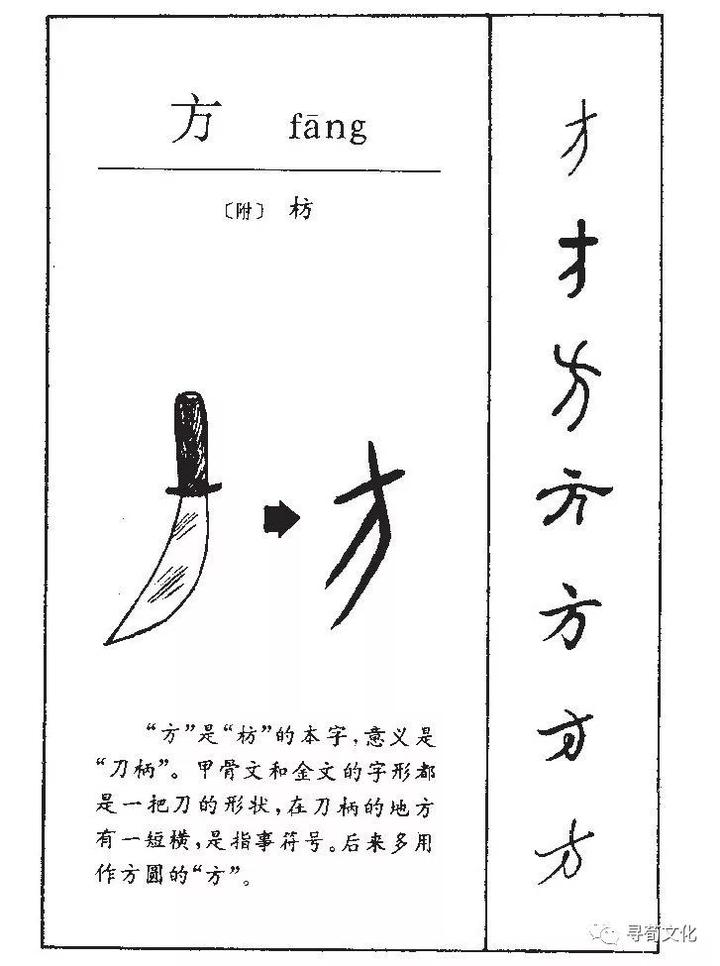 方 fāng
〔附〕 枋
“方”是“枋”的本字，意义是
“刀柄”。甲骨文和金文的字形都
是一把刀的形状，在刀柄的地方
有一短横，是指事符号。后来多用
作方圆的“方”。
方
方
方
方
方
方
方
寻荀文化